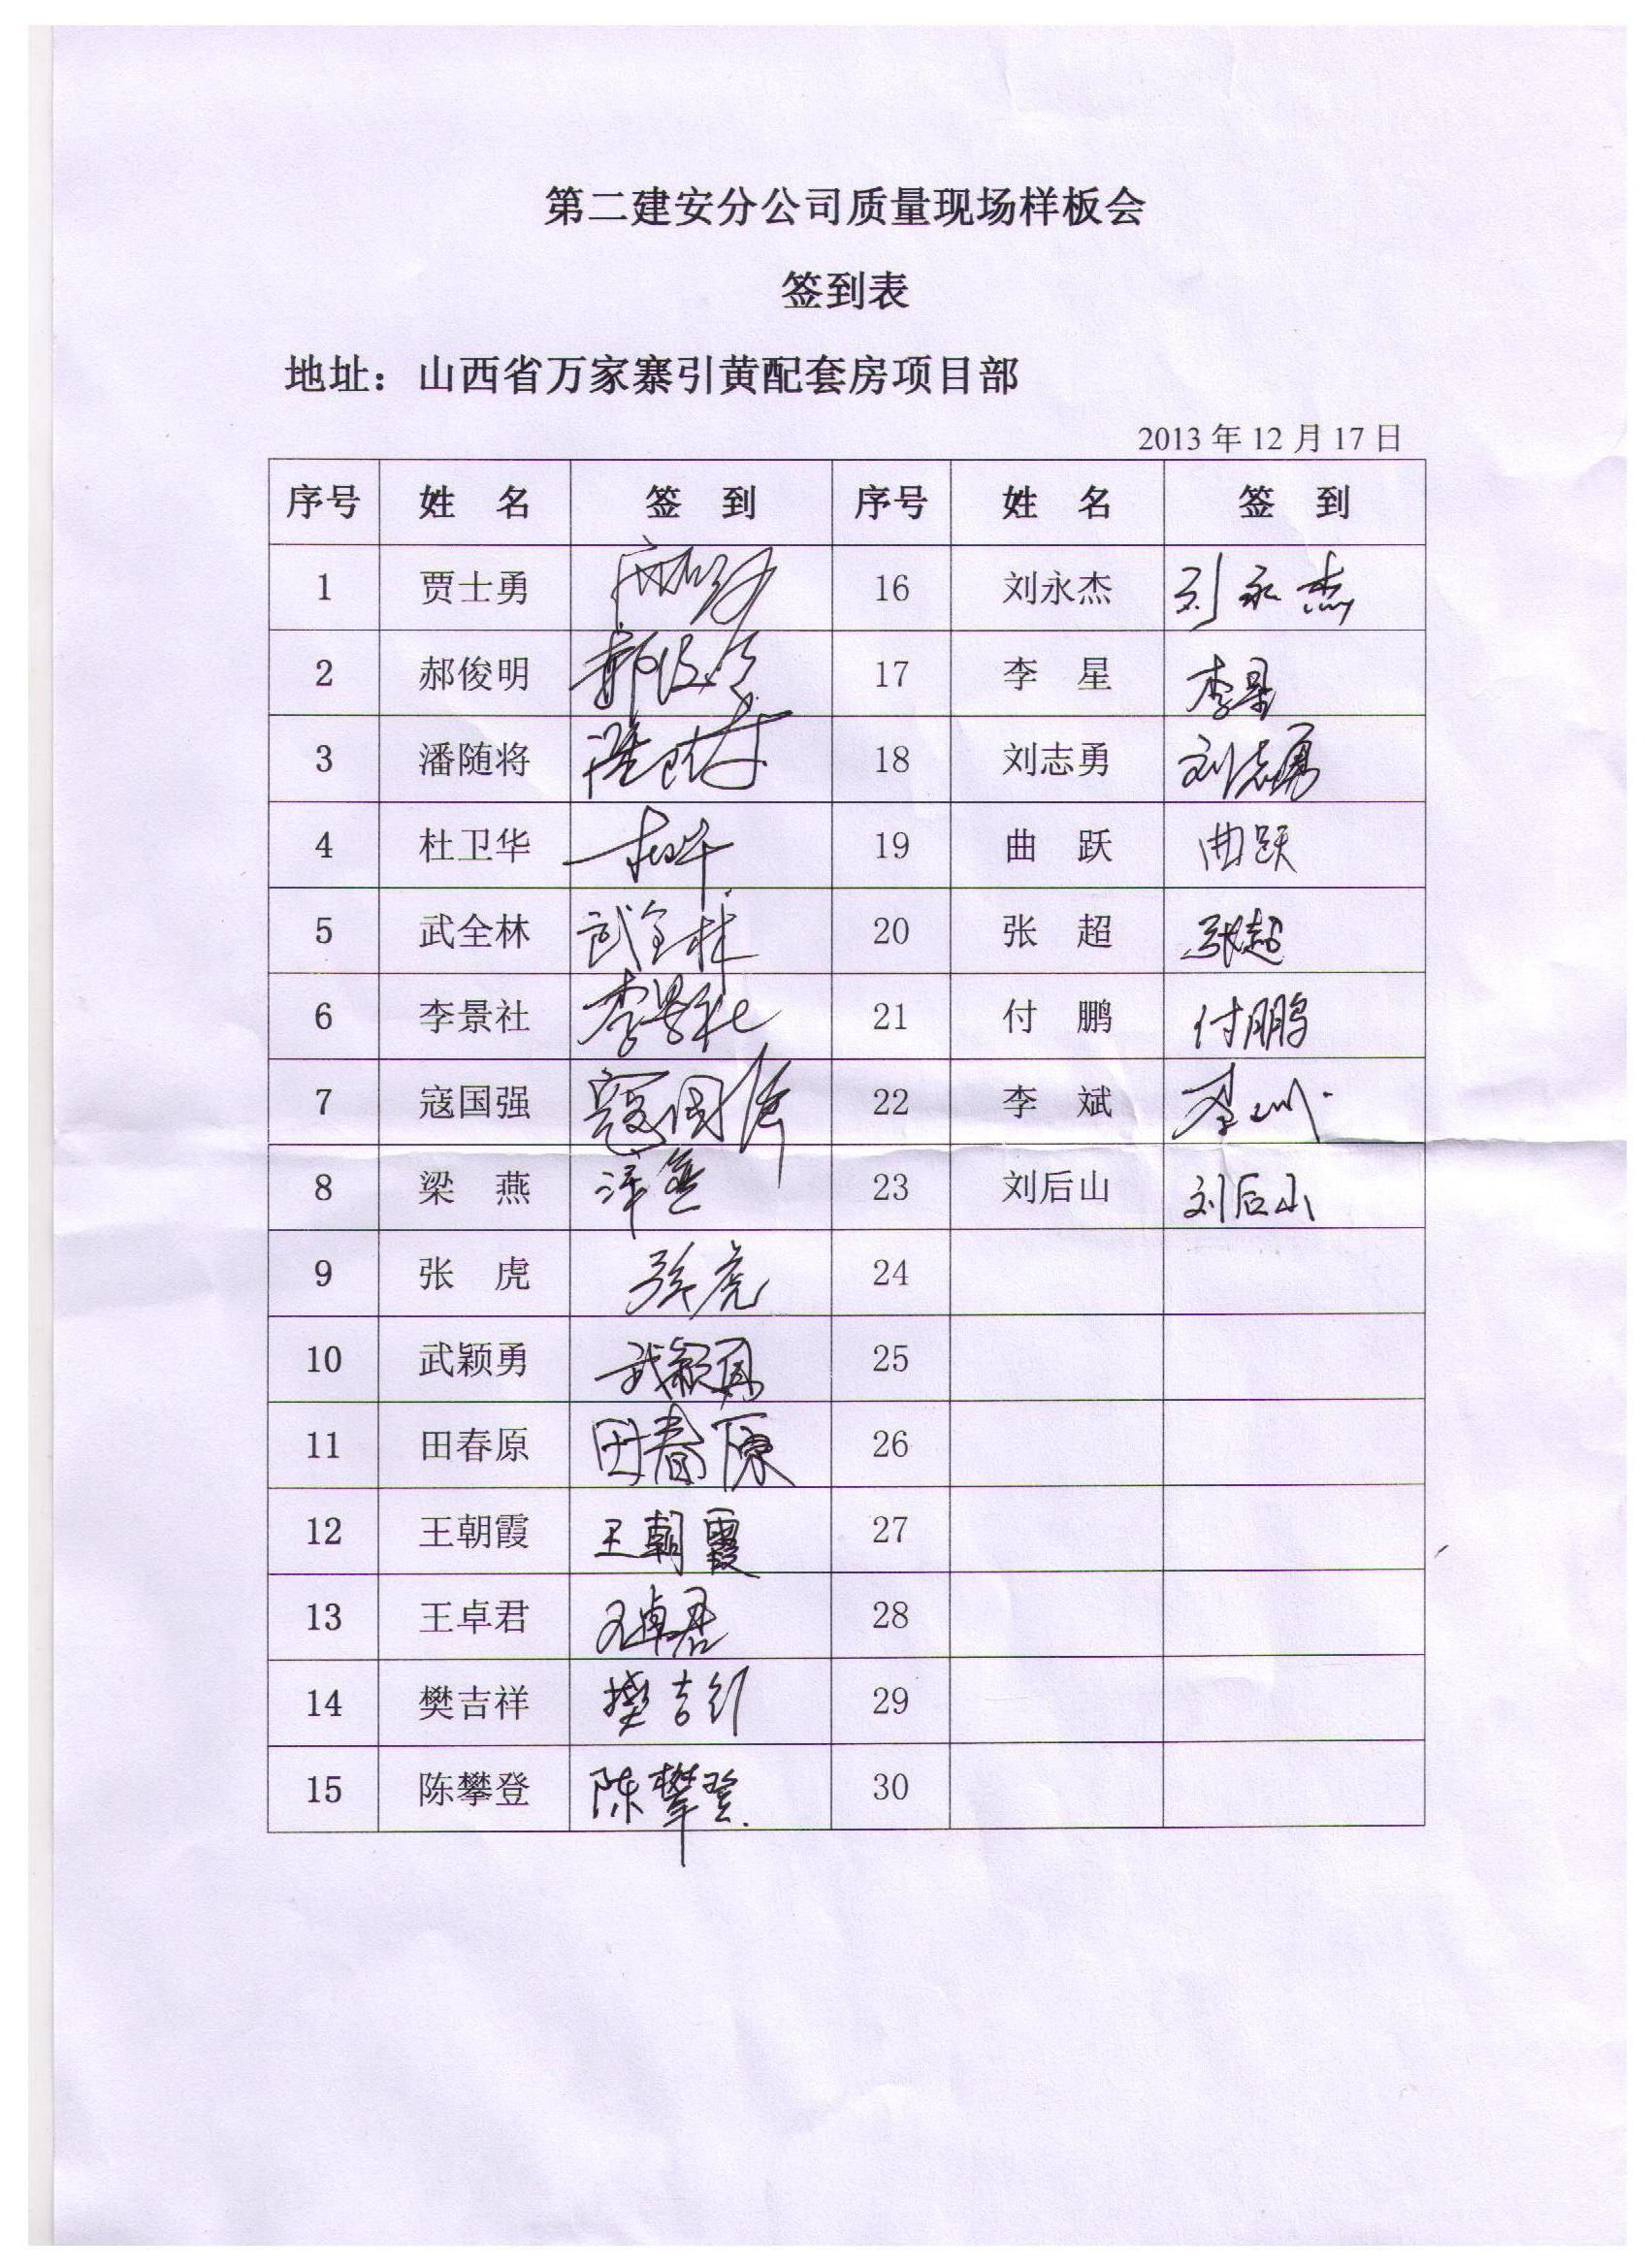 第二建安分公司质量现场样板会
签到表
地址：山西省万家寨引黄配套房项目部
2013年12月17日
序号 姓 名 签 到 序号 姓 名 签 到
1 贾士勇 16 刘永杰 刘永杰
2 郝俊明 郝俊明 17 李 星 李星
3 潘随将 潘随将 18 刘志勇 刘志勇
4 杜卫华 19 曲 跃 曲跃
5 武全林 武全林 20 张 超 张超
6 李景社 李景社 21 付 鹏 付鹏
7 寇国强 寇国强 22 李 斌 李斌
8 梁 燕 23 刘后山 刘后山
9 张 虎 张虎 24
10 武颖勇 武颖勇 25
11 田春原 田春原 26
12 王朝霞 王朝霞 27
13 王卓君 王卓君 28
14 樊吉祥 樊吉祥 29
15 陈攀登 陈攀登 30